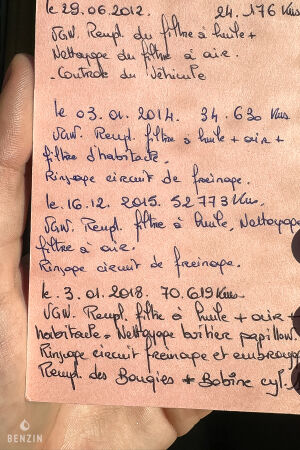 le 29.06.2012. 24.176 Kms
VGW. Rempl. du filtre à huile +
Nettoyage du filtre à air.
- Controle du Véhicule
le 03.01.2014. 34.630 Kms
VGW. Rempl. filtre à huile + air +
filtre d'habitacle.
Rinçage circuit de freinage.
le 16.12.2015. 52773 Kms.
VGW. Rempl. filtre à huile, Nettoyage
filtre à air.
Rinçage circuit de freinage.
le 3.01.2018. 70.619 Kms
VGW. Rempl. filtre à huile + air +
habitacle = Nettoyage boîtier papillon.
Rinçage circuit freinage et embrayage
Rempl. des Bougies + Bobine cyl.
BENZIN